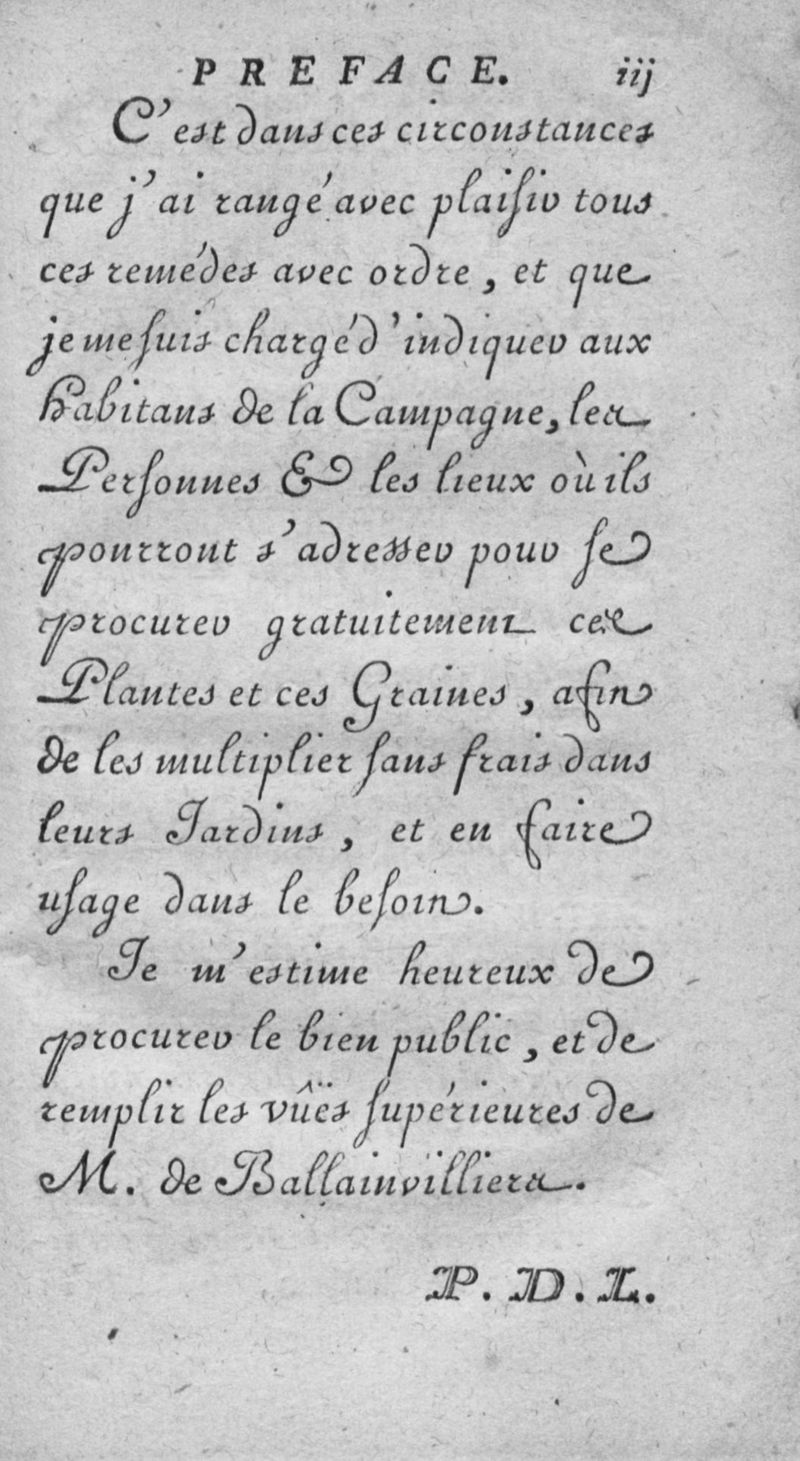 PREFACE. iij
C'est dans ces circonstances
que j'ai rangé avec plaisir tous
ces remédes avec ordre, et que
je me suis chargé d'indiquer aux
habitans de la Campagne, les
Personnes & les lieux où ils
pourront s'adresser pour se
procurer gratuitement ces
Plantes et ces Graines, afin
de les multiplier sans frais dans
leurs Jardins, et en faire
usage dans le besoin.
Je m'estime heureux de
procurer le bien public, et de
remplir les vûës supérieures de
M. de Ballainvilliers.
P. D. L.